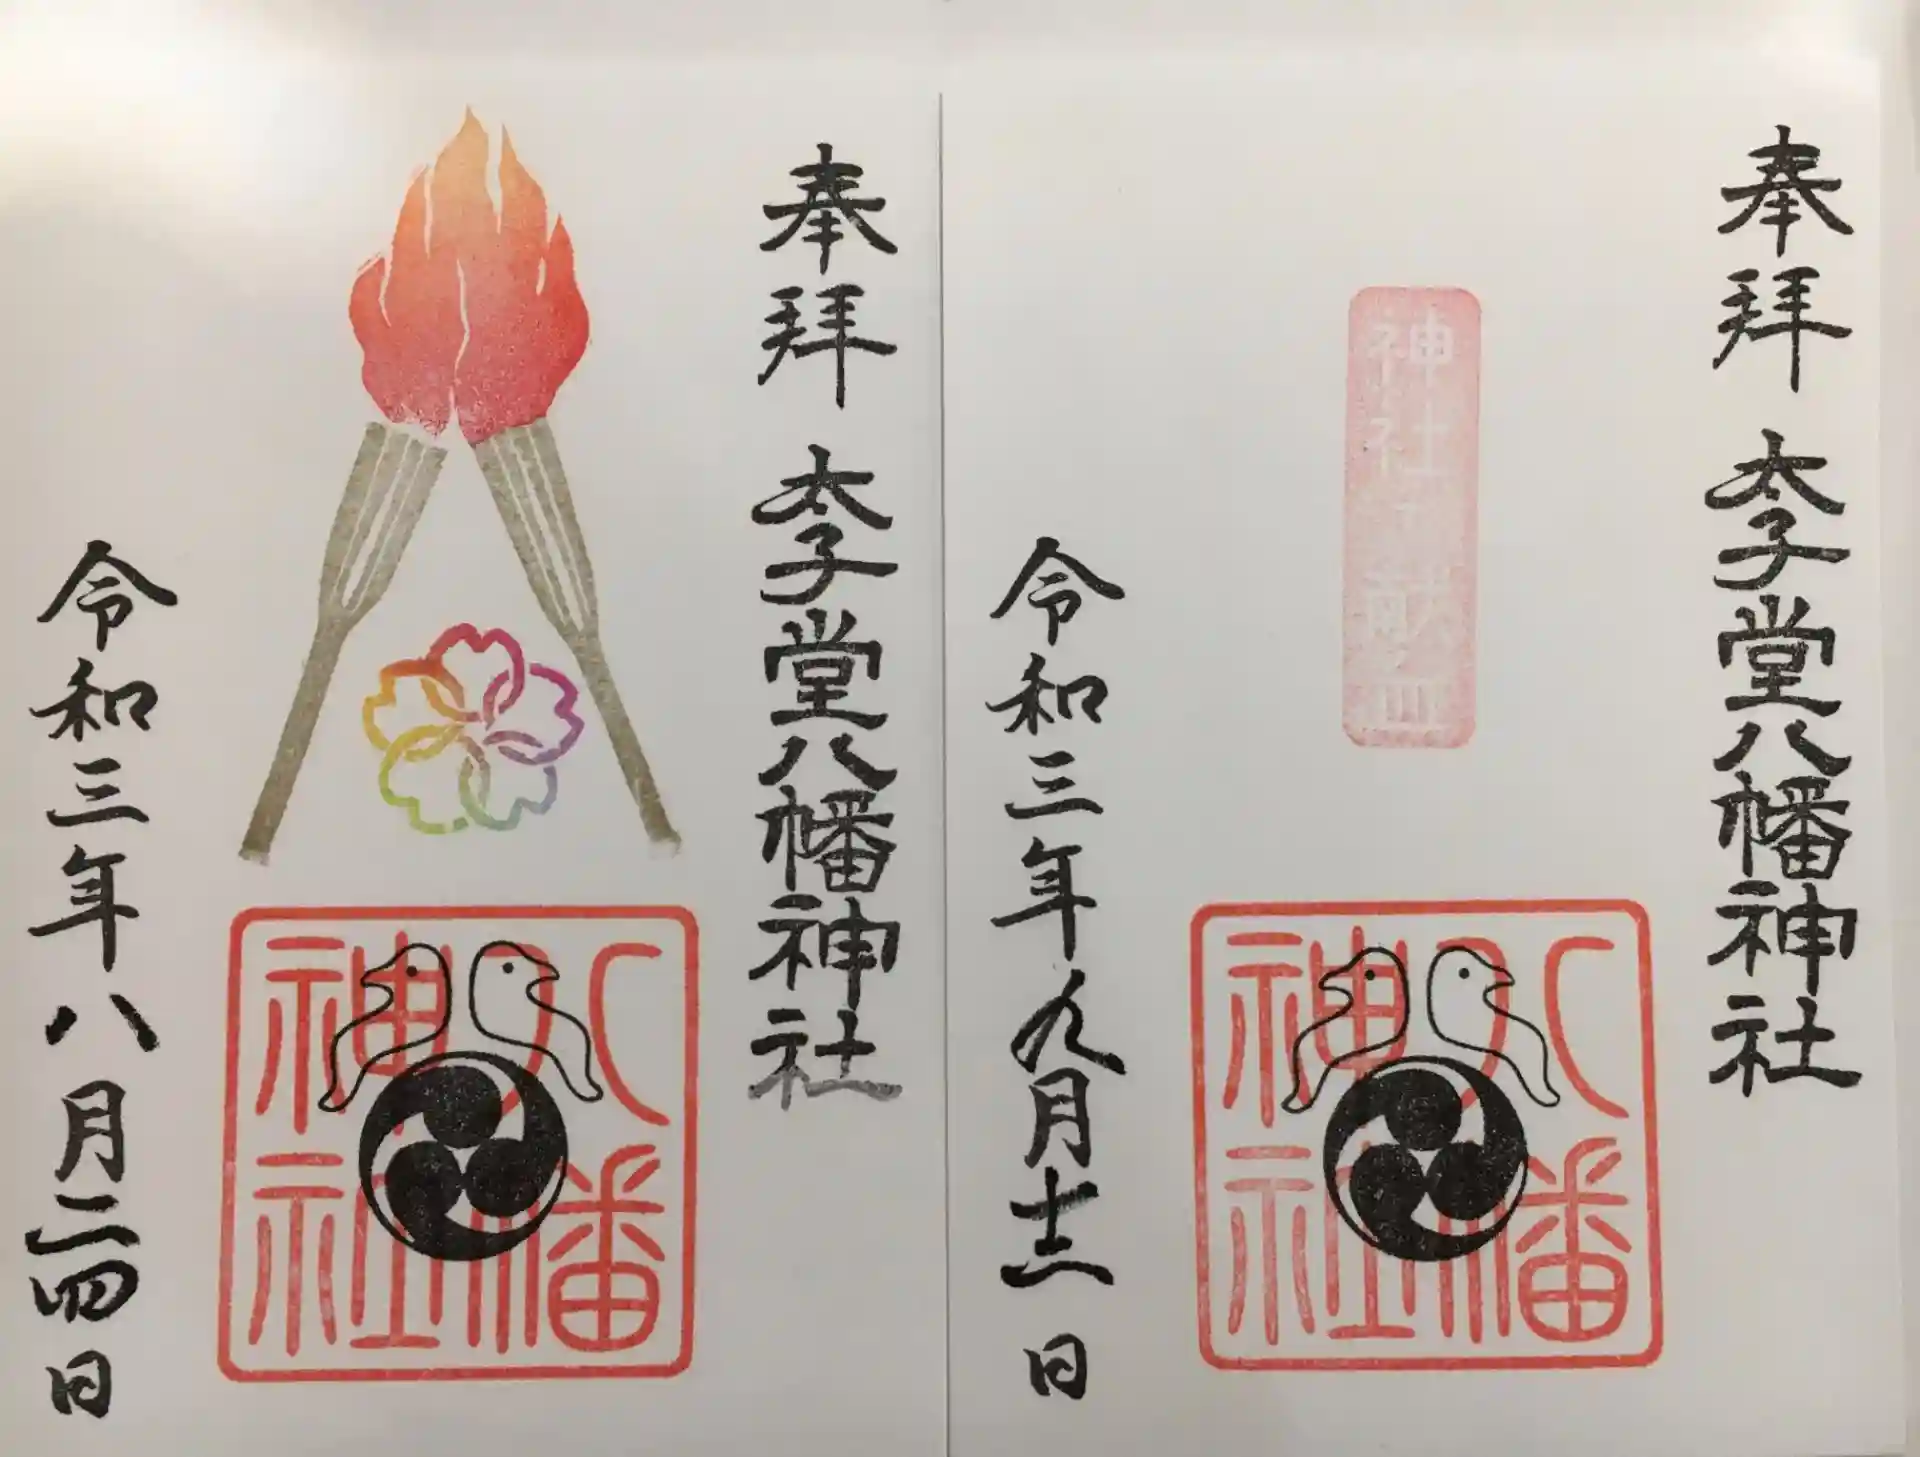 奉拝 太子堂八幡神社
令和三年九月十二日
八幡神社
奉拝 太子堂八幡神社
令和三年八月二四日
八幡神社